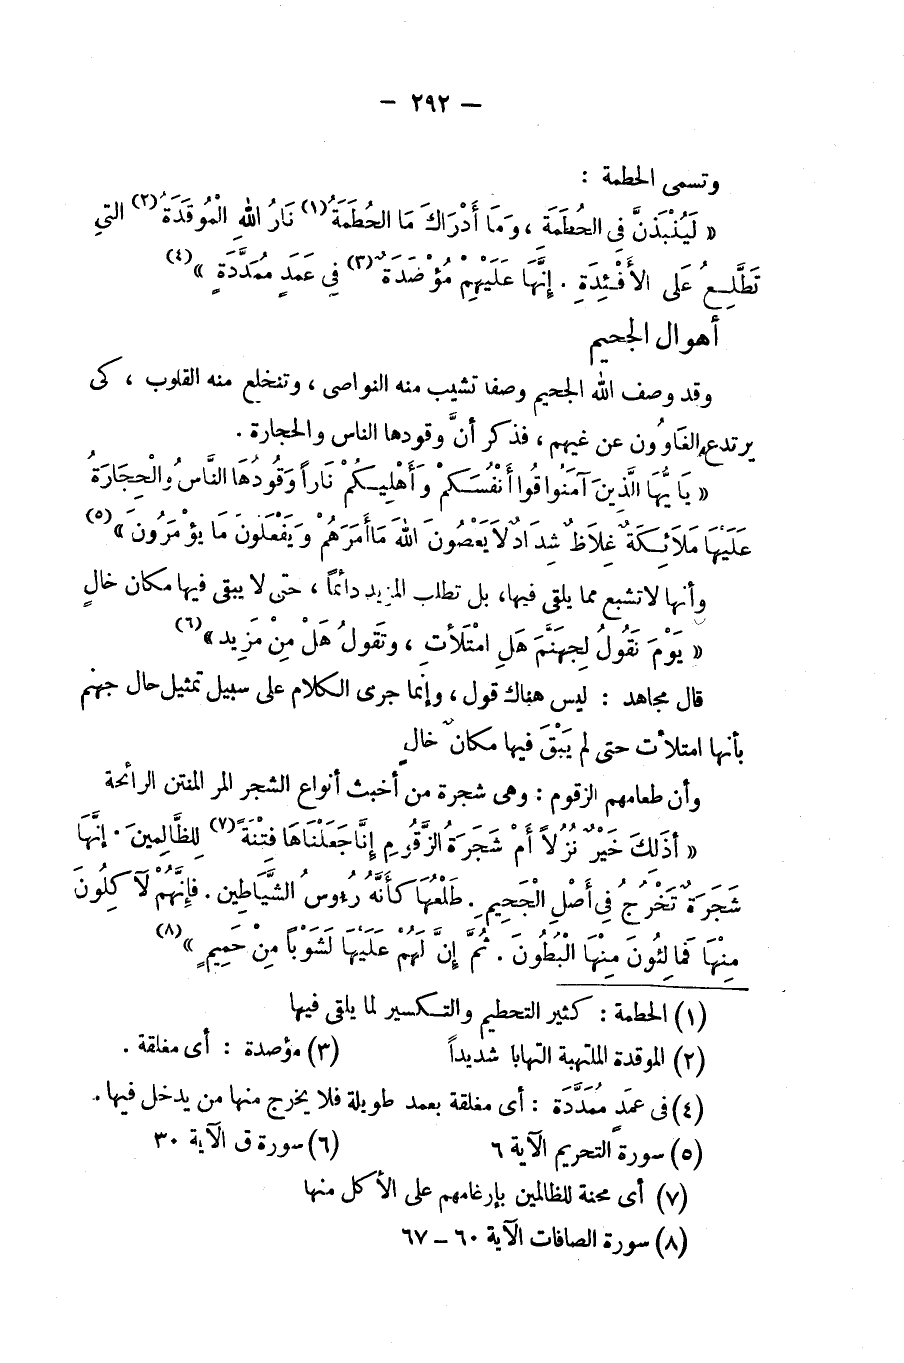 — ٢٩٢ —
وتسمى الحطمة :
« لَيُنْبَذَنَّ فِى الحُطَمَةِ ، وَمَا أَدْرَاكَ مَا الحُطَمَةُ(١) نَارُ اللهِ الْمُوقَدَةُ(٢) التِي
تَطَّلِعُ عَلَى الأَفْئِدَةِ . إِنَّهَا عَلَيْهِمْ مُؤْصَدَةٌ(٣) فِي عَمَدٍ مُمَدَّدَةٍ »(٤)
أهوال الجحيم
وقد وصف الله الجحيم وصفا تشيب منه النواصى ، وتنخلع منه القلوب ، كى
يرتدع الغاوُون عن غيهم ، فذكر أنَّ وقودها الناس والحجارة .
« يَا يُّهَا الَّذِينَ آمَنُوا قُوا أَنْفُسَكُمْ وَأَهْلِيكُمْ نَاراً وَقُودُهَا النَّاسُ والْحِجَارَةُ
عَلَيْهَا مَلَائِكَةٌ غِلَاظٌ شِدَادٌ لَا يَعْصُونَ اللهَ مَا أَمَرَهُمْ وَيَفْعَلُونَ مَا يؤْمَرُونَ »(٥)
وأنها لا تشبع مما يلقى فيها، بل تطلب المزيد دائماً ، حتى لا يبقى فيها مكان خالٍ
« يَوْمَ نَقُولُ لِجهَنَّمَ هَلِ امْتَلَأتِ ، وتَقولُ هَلْ مِنْ مَزِيد »(٦)
قال مجاهد : ليس هناك قول ، وإنما جرى الكلام على سبيل تمثيل حال جهنم
بأنها امتلأت حتى لم يَبْقَ فيها مكان خالٍ
وأن طعامهم الزقوم : وهى شجرة من أخبث أنواع الشجر المر المنتن الرائحة
« أذَلِكَ خَيْرٌ نُزُلاً أَمْ شَجَرَةُ الزَّقُّومِ إِنَّا جَعَلْنَاهَا فِتْنَةً(٧) لِلظَّالِمِينَ . إنَّهَا
شَجَرَةٌ تَخْرُجُ فِي أَصْلِ الْجَحِيمِ . طَلْعُهَا كَأَنَّهُ رُءوسُ الشَّيَاطِين . فإِنَّهُمْ لَآ كِلُونَ
مِنْهَا فَمَالِئُونَ مِنْهَا الْبُطُونَ . ثُمَّ إِنَّ لَهُمْ عَلَيْهَا لَشَوْباً مِنْ حَمِيمٍ »(٨)
(١) الحطمة : كثير التحطيم والتكسير لما يلقى فيها
(٢) الموقدة الملتهبة التهابا شديداً (٣) مؤصدة : أى مغلقة .
(٤) فى عمَدٍ مُمَدَّدَة : أى مغلقة بعمد طويلة فلا يخرج منها من يدخل فيها .
(٥) سورة التحريم الآية ٦ (٦) سورة ق الآية ٣٠
(٧) أى محنة للظالمين بإرغامهم على الأكل منها
(٨) سورة الصافات الآية ٦٠ – ٦٧